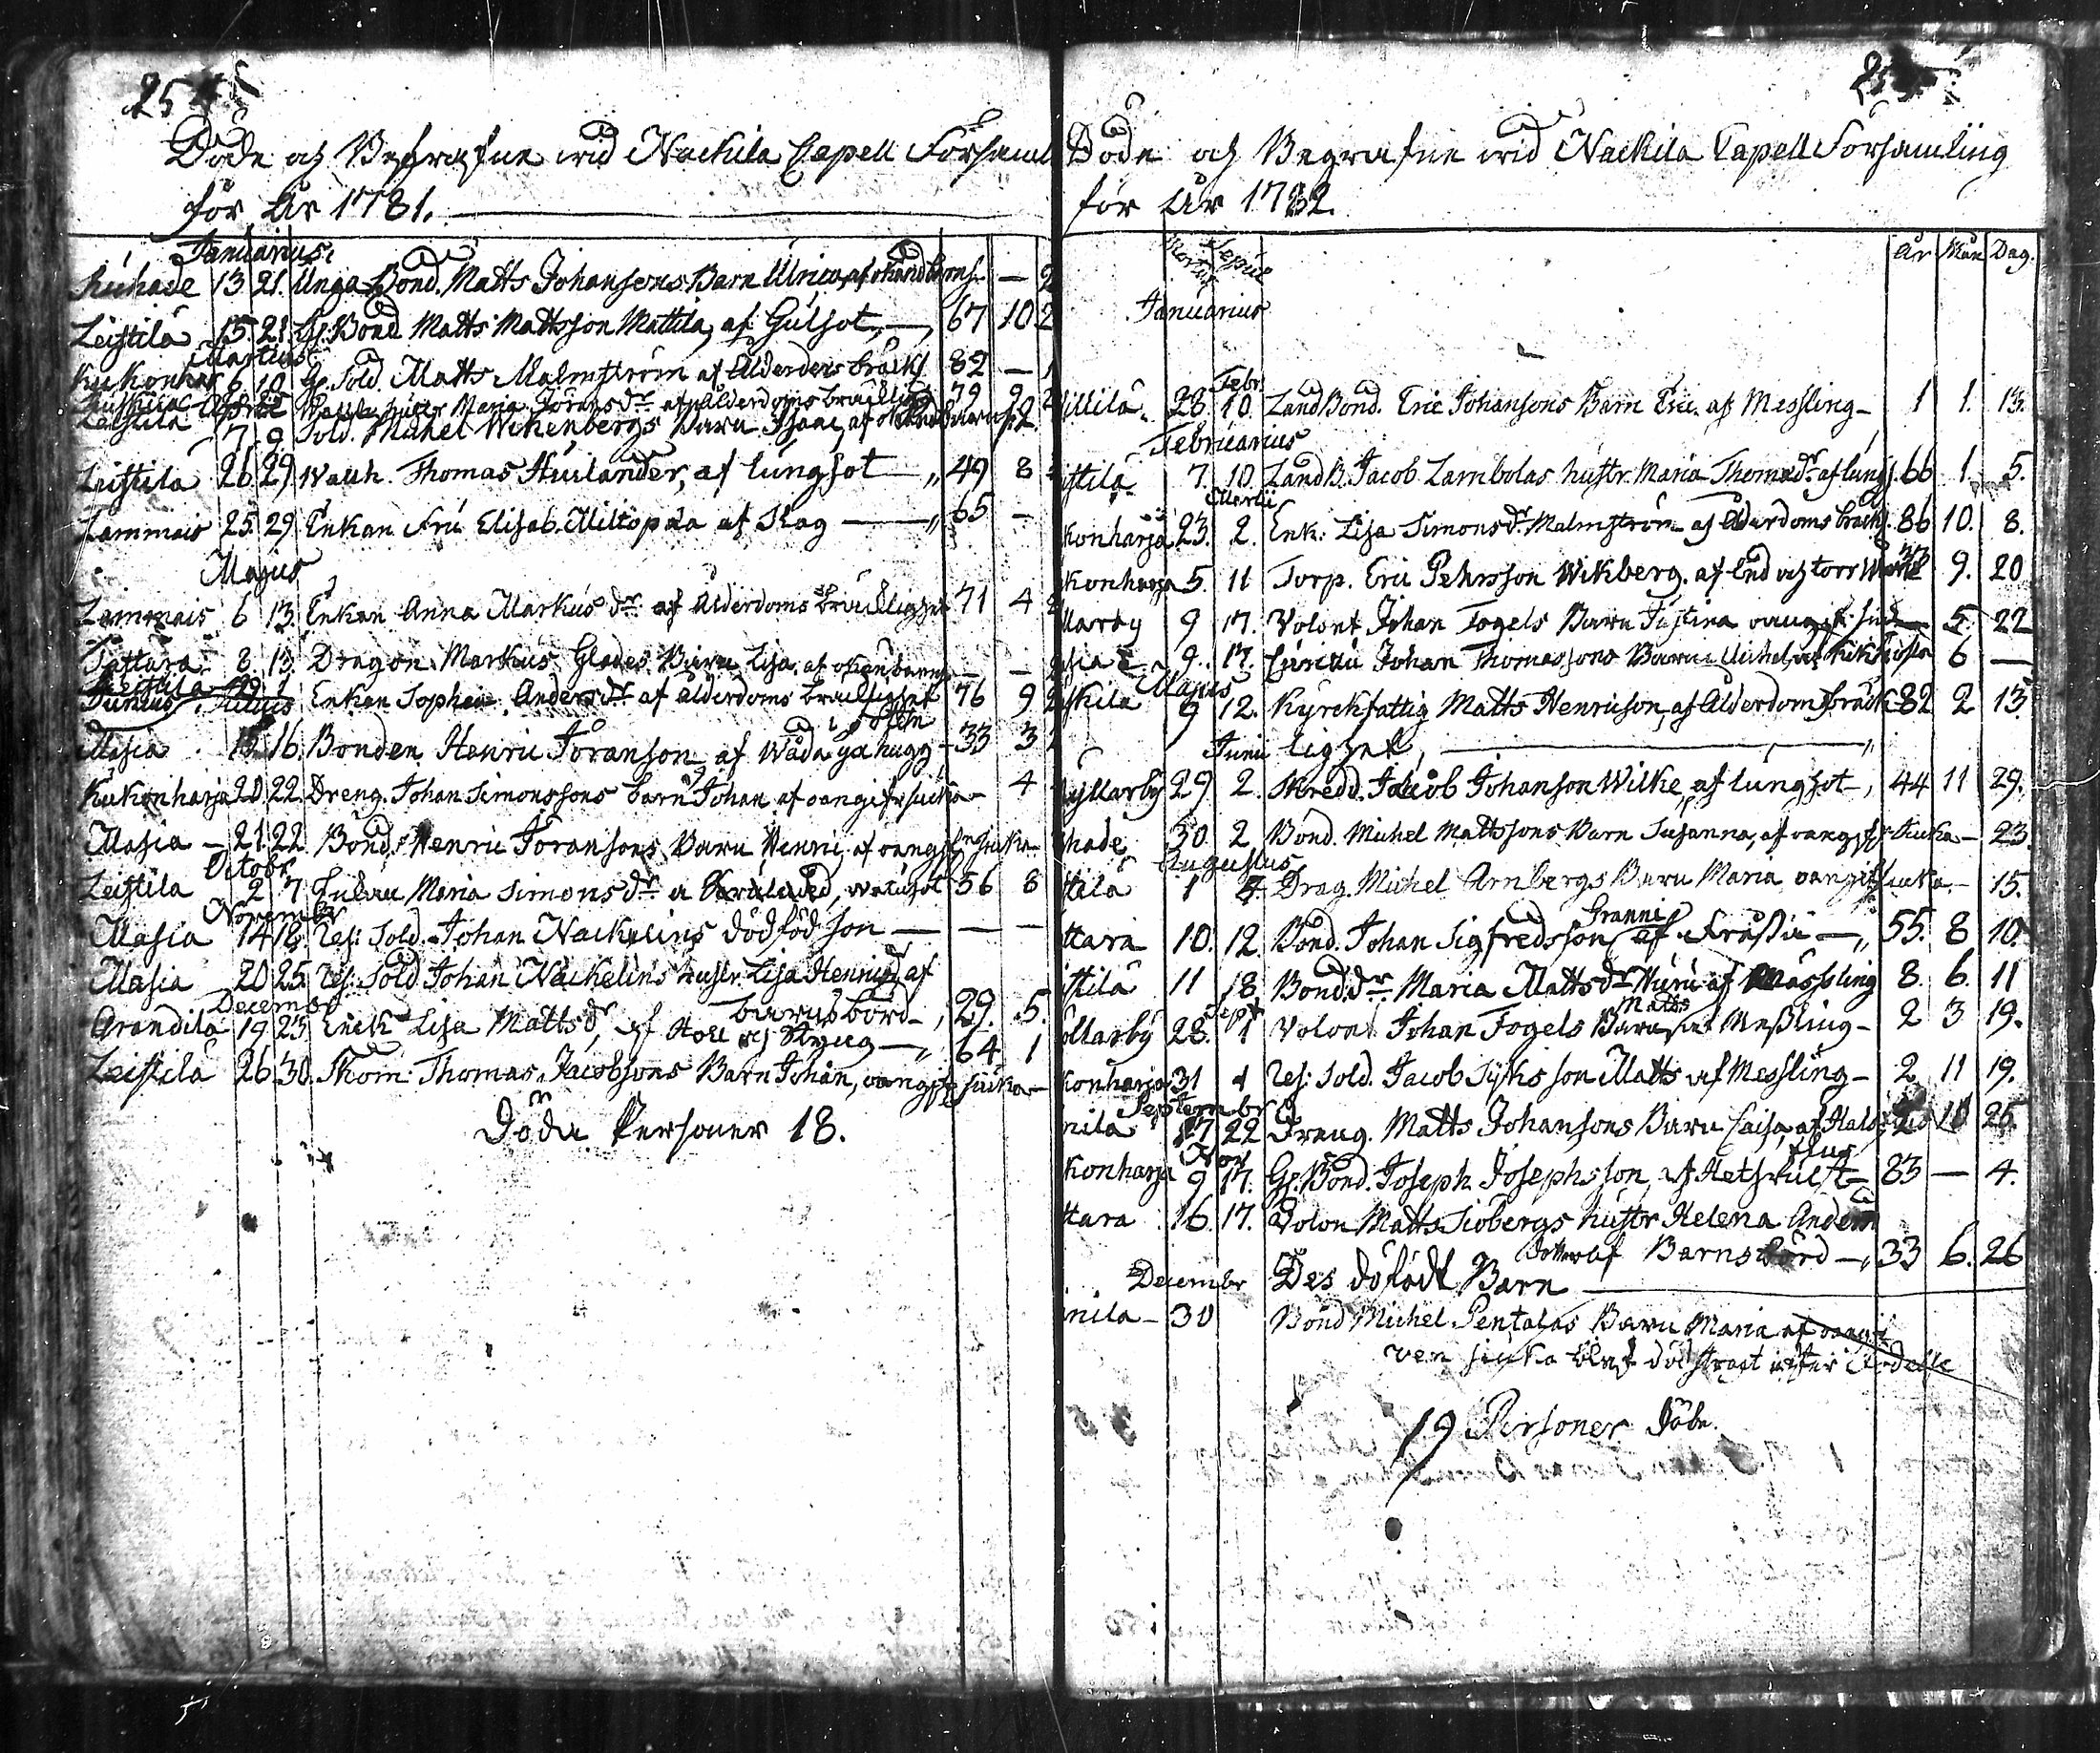 254
Döde och Begrafne wid Nackila Capell Församl
för År 1781.
Januarius
Ruhade 13 21. Unga Bond. Matts Johansons Barn Ulrica, af okänd barns. —
Leistila 15. 21. Gl. Bond Matts Mattsson Mattila, af Gulsot, — 67 10 2
Martius
Kukonhar 6 10 Gl. Sold. Matts Malmström af Ålderdoms bräckl 82 —
hustr Maria Joransdr. af Ålderdoms bräcklighet 79 9
Aprill
Leistila 7 9 Sold. Michel Wikenbergs Barn Isaac, af 2
Leistila 26 29 Wallk. Thomas Hurlander, af lungsot — 49 8
Lammais 25 29 Enkan Fru Elisab. Miltopæa af Slag — 65 —
Majus
Lammais 6 13 Enkan Anna Markus dr. af Ålderdoms bräcklighet 71 4
Tattara 8. 13 Dragon Markus Glades Barn Lisa. af okän barns — —
Leistila 29 1
Junius Julius Enkan Sophia Anders dr. af ålderdoms bräcklighet 76 9
Masia 16. Bonden Henric Joranson af Wåda yxhugg i foten 33 3
Kukonharja 20 22. Dreng. Johan Simonssons barn Johan af oangifn siuka — 4
Masia — 21 22 Bond. Henric Joransons Barn Henric, af oangifn siuka —
Octobr
Leistila 2 7 Enkan Maria Simonsdr. a Soraland, watusot 56 8
Novembr
Masia 14 18 Res: Sold. Johan Nackelins dödföd son — — —
Masia 20 25. Res: Sold Johan Nackelins hustr. Lisa Henricsd af
barnsbörd —, 29. 5.
Decembr
Arandila 19 23 Enck Lisa Mattsdr, af Håll och Styng — 64 1
Leistila 26 30. Skom: Thomas Jacobsons Barn Johan, oangif siuka —
Döda Personer 18.
Döde och Begrafne wid Nackila Capell Församling
för År 1782.
År Mån Dag.
Januarius
Febr.
illilä 28 10. LandBond. Eric Johansons Barn Eric. af Messling — 1 1. 13.
Februarius
istila 7. 10. LandB. Jacob Lambolas hustr. Maria Thomædr. af lungs. 66 1. 5.
Martii
konharja 23. 2. Enk: Lisa Simonsdr. Malmström af Ålderdoms bräckl. 86 10. 8.
konharja 5. 11 Torp. Eric Pehrsson Wikberg. af End och torr Werk 33 9. 20
llarby 9 17. Volont Johan Fogels Barn Justina oangif: siuk — 5 22
asia 9. 17. Johan Thomassons Barn Michel, af Kikhosta 6 —
Majus
iskila 9 12. Kyrckfattig Matts Henricson, af Ålderdoms bräck- 82 2 13.
Junii ligget, —
yllarby 29 2. Skredd. Jacob Johanson Wilke, af lungsot —, 44 11 29.
uhade 30 2 Bond. Michel Mattssons Barn Susanna, af oangifn siuka — 23
Augustus
tila 1 4 Drag. Michel Arnbergs Barn Maria oangif siuka, — 15.
ttara 10. 12. Bond. Johan Sigfredsson Granni af Frossa — 55. 8 10.
istila 11 18. Bond. dr. Maria Mattsdr Huru af Mässling 8. 6. 11
Sept
ollarby 28. 1 Volont Johan Fogels Barn Matts af Meßling — 2 3 19.
konharja 31 1 Res: Sold. Jacob Sijks son Matts af Messling — 2 11 19.
Septembr
nila 17 22 Dreng. Matts Johansons Barn Caisa, af Hals 2 10 26.
Nov.
Konharja 9 17. Gl. Bond. Joseph Josephsson, af Hetsig 83 — 4.
ttara 16. 17. Volon Matts Siöbergs hustr Helena Anders
dotter af Barnsbörd — 33 6. 26
Decembr Des döfödt Barn —
nila — 30 Bond Michel Pentalas Barn Maria af oangif
ven siuka blef död straxt efter födelse
19 Personer Döde.